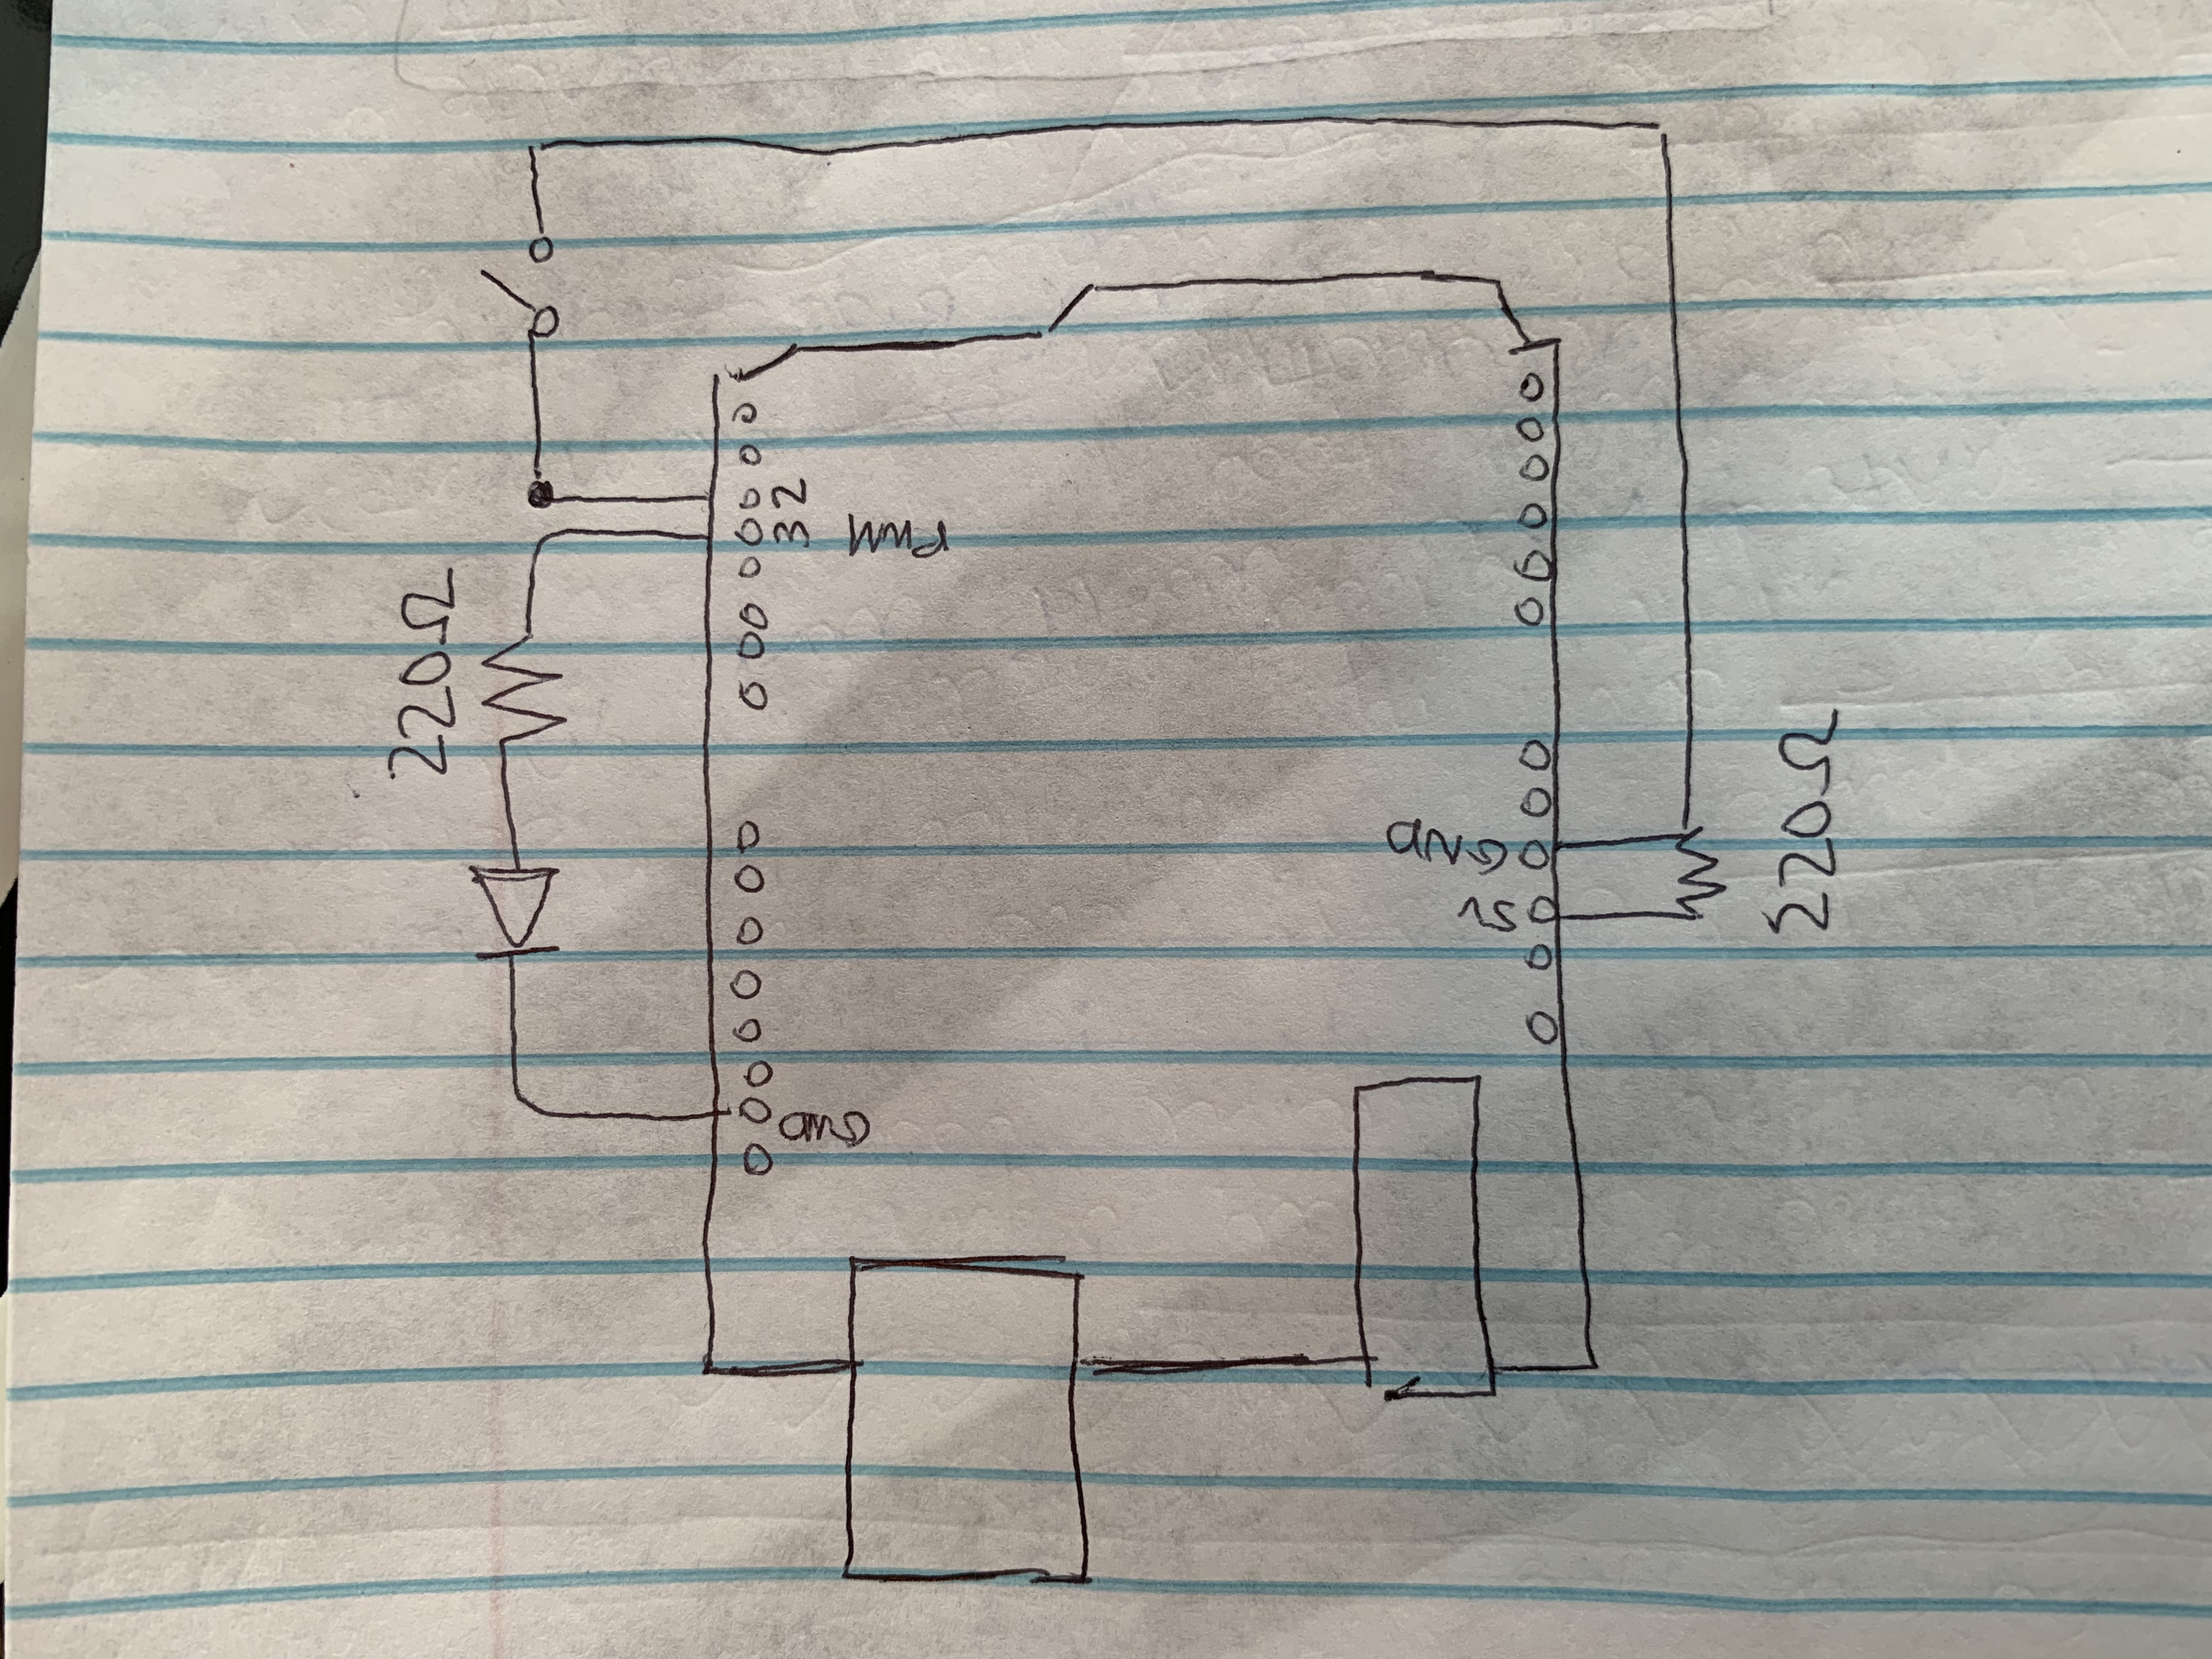 220Ω
GND
32
PWM
5V
GND
220Ω